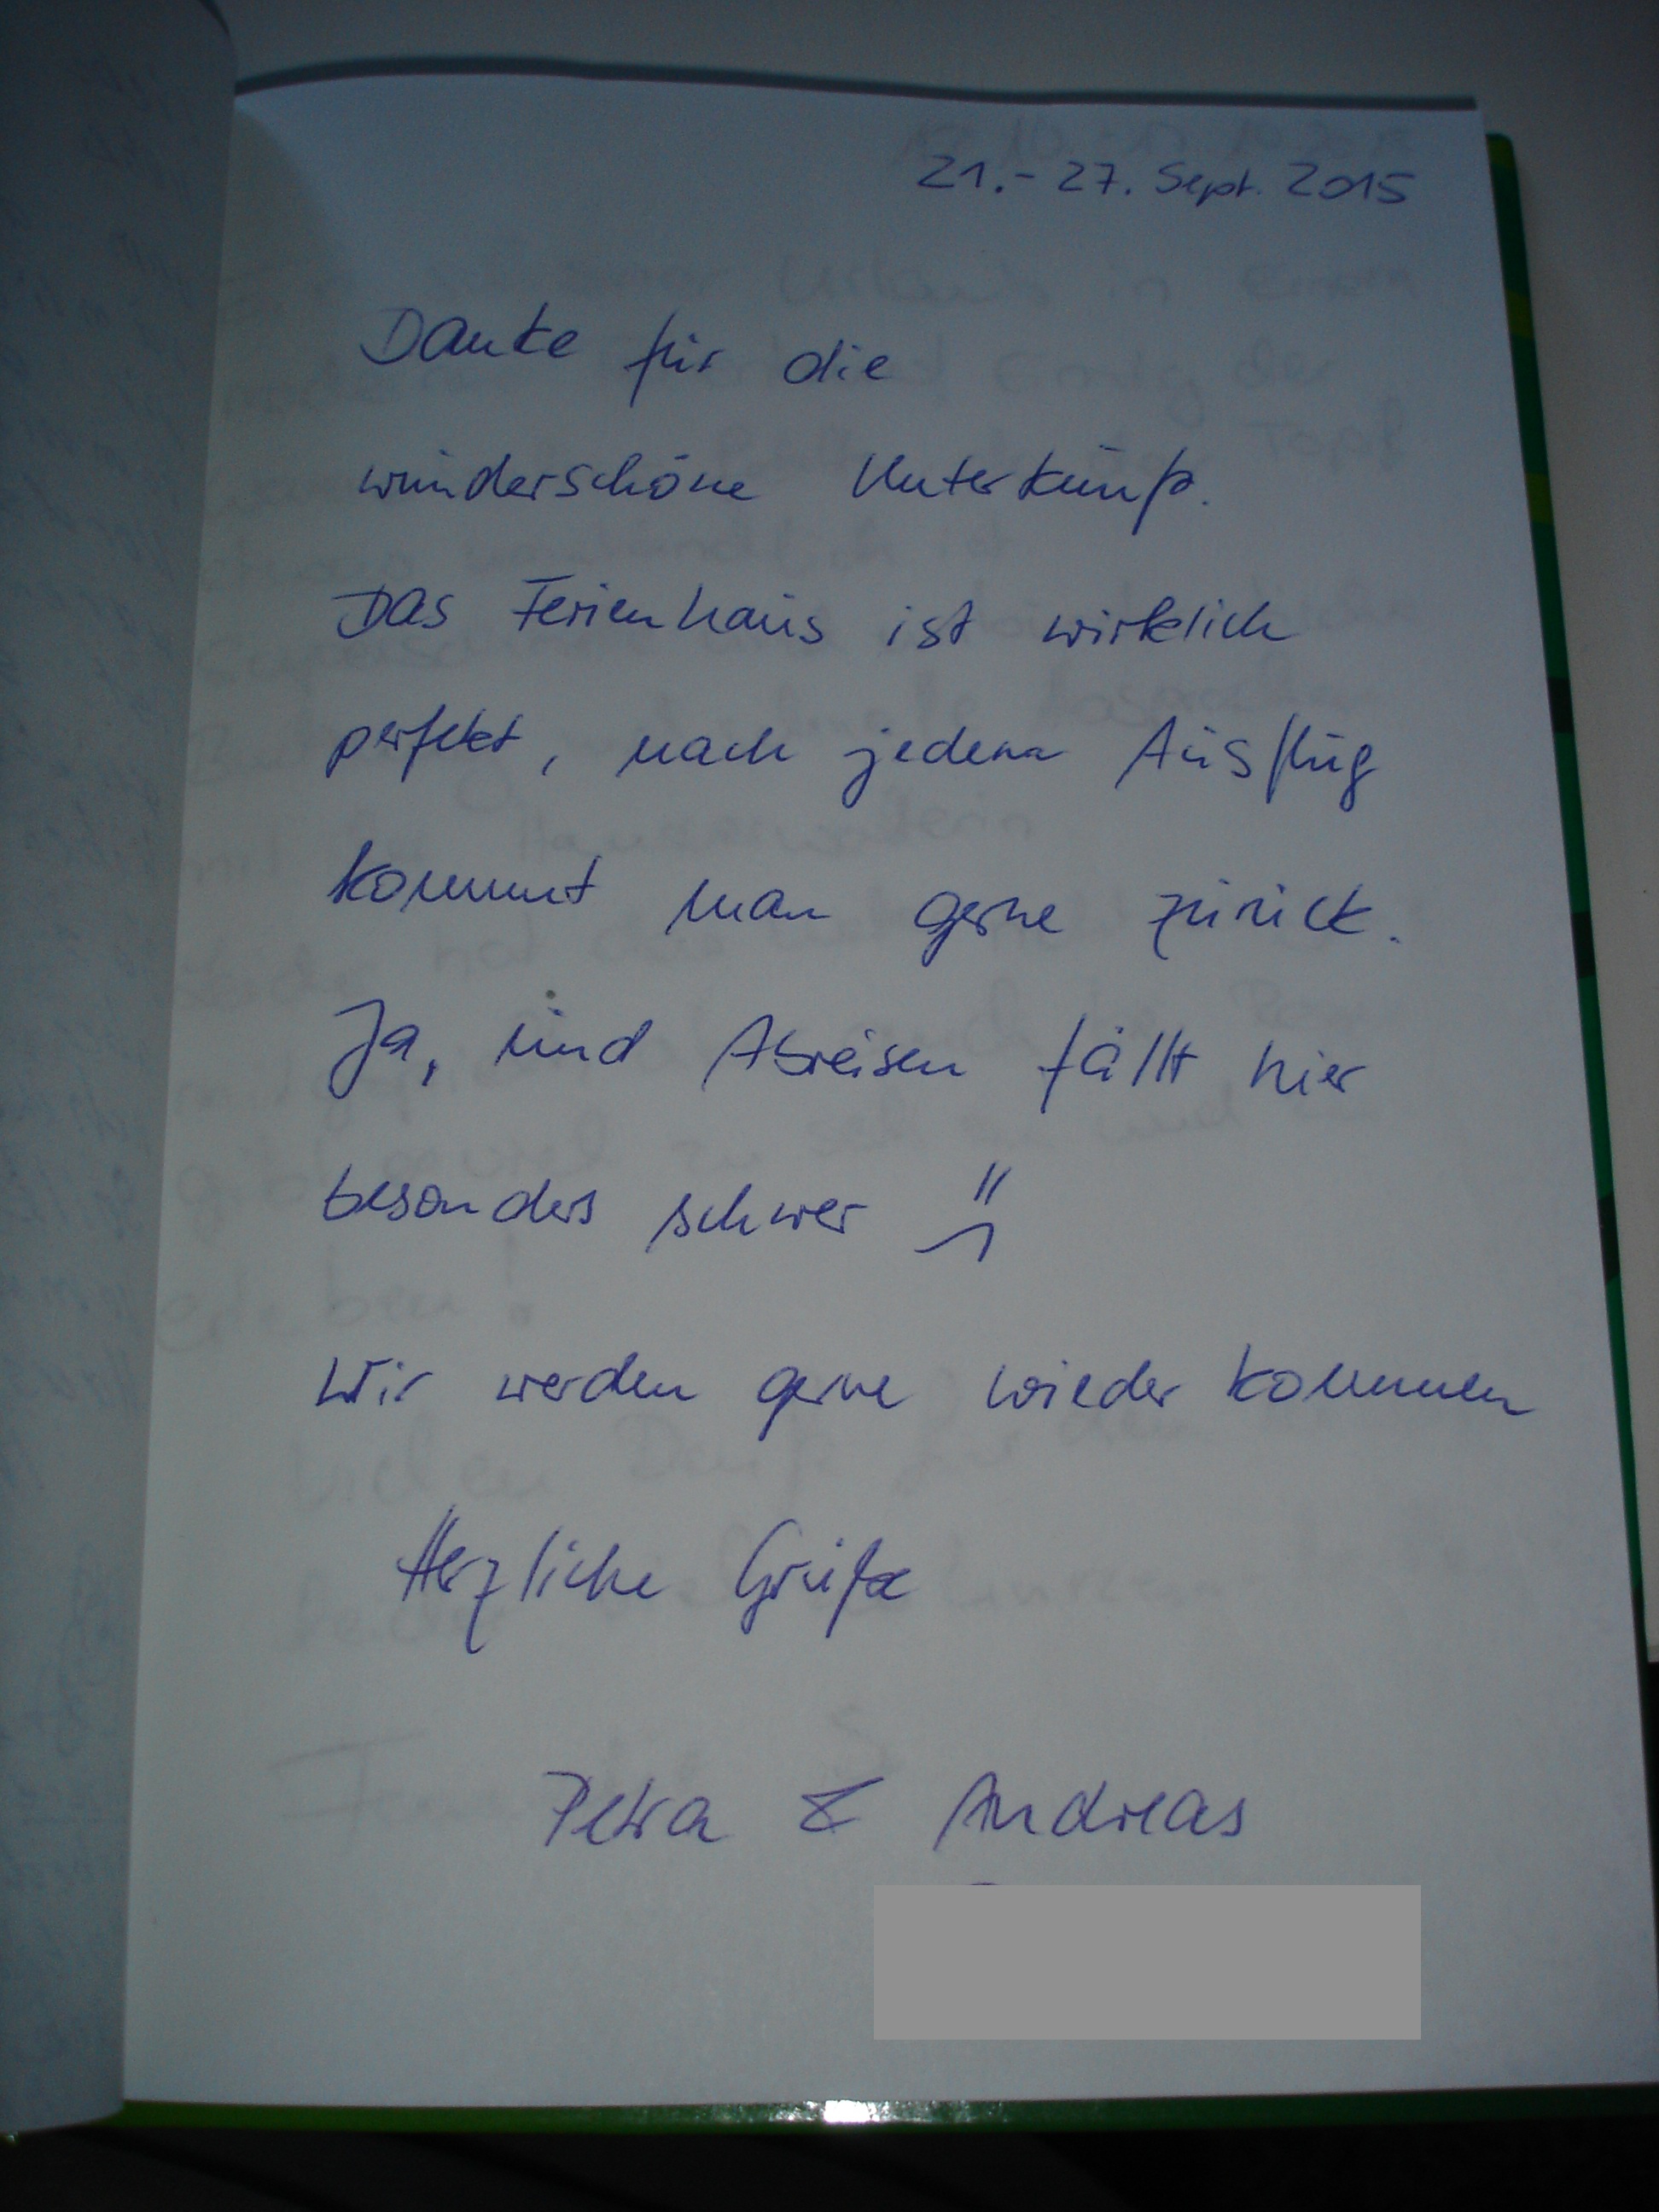 21.- 27. Sept. 2015
Danke für die
wunderschöne Unterkunft.
Das Ferienhaus ist wirklich
perfekt, nach jedem Ausflug
kommt man gerne zurück.
Ja, und Abreisen fällt hier
besonders schwer
Wir werden gerne wieder kommen
Herzliche Grüße
Petra & Andreas